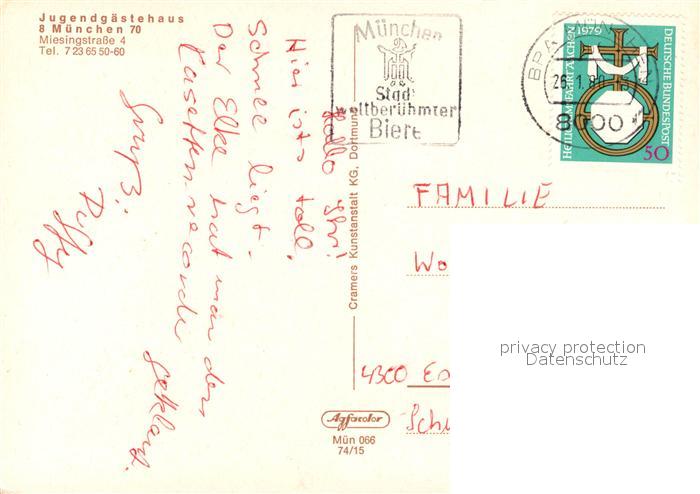 Jugendgästehaus
8 München 70
Miesingstraße 4
Tel. 7 23 65 50-60
München
Stadt
weltberühmter
Biere
26.-1.80
8000
HEILIGTUMSFAHRT AACHEN 1979
DEUTSCHE BUNDESPOST
50
Hallo Ihr!
Hier ists toll.
Schnee liegt.
Der Elke hat man den
Casettenrecorder
geklaut.
Gruß..
Cramers Kunstanstalt KG, Dortmund
FAMILIE
Wo
4300 Es
Schu
privacy protection
Datenschutz
Agfacolor
Mün 066
74/15